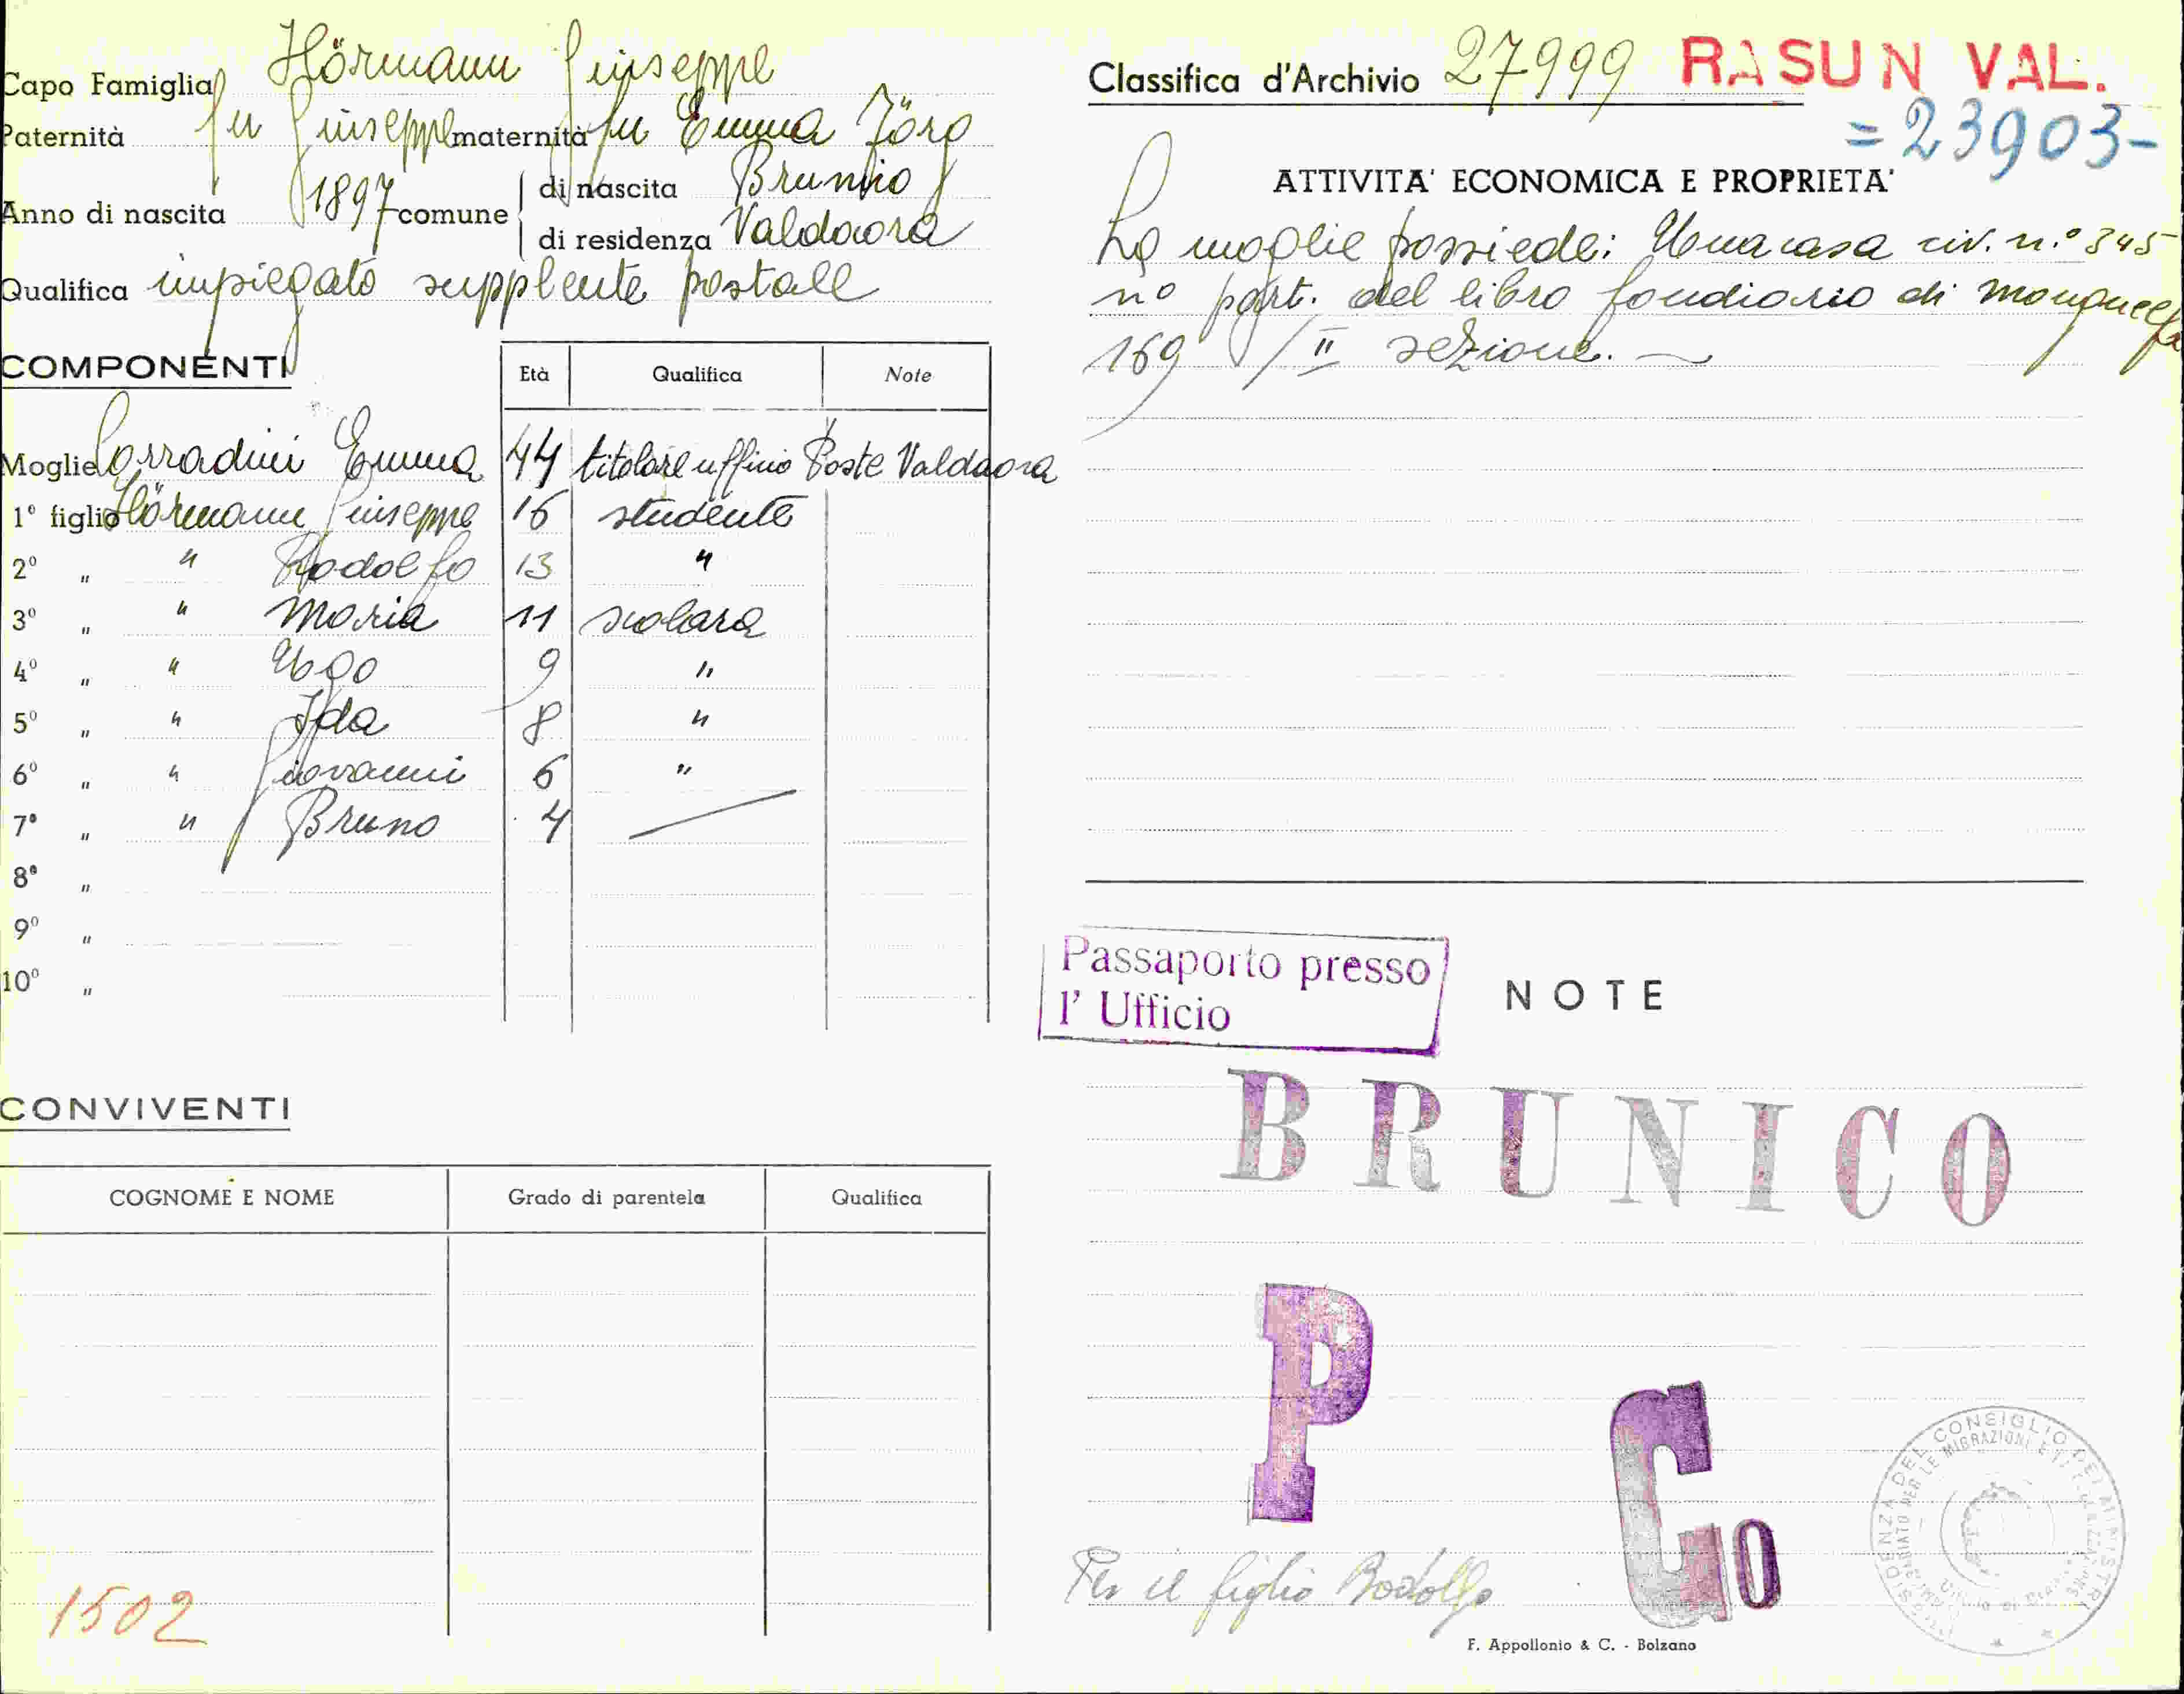 Capo Famiglia Hörmann Giuseppe
Paternità fu Giuseppe maternità fu Emma Jörg
Anno di nascita 1897 comune di nascita Brunico
di residenza Valdaora
Qualifica impiegato supplente postale
COMPONENTI Età Qualifica Note
Moglie Corradini Emma 44 titolare ufficio Poste Valdaora
1º figlio Hörmann Giuseppe 16 studente
2º " " Rodolfo 13 "
3º " " Maria 11 scolara
4º " " Ugo 9 "
5º " " Ida 8 "
6º " " Giovanni 6 "
7º " " Bruno 4
8º "
9º "
10º "
CONVIVENTI
COGNOME E NOME Grado di parentela Qualifica
1502
Classifica d'Archivio 27999 RASUN VAL.
=23903-
ATTIVITA' ECONOMICA E PROPRIETA'
La moglie possiede: Una casa civ. n.º 345
nº part. del libro fondiario di Monguelfo
169 / II sezione.
Passaporto presso
l' Ufficio
NOTE
BRUNICO
P
Go
Per il figlio Rodolfo
PRESIDENZA DEL CONSIGLIO DEI MINISTRI
F. Appollonio & C. - Bolzano